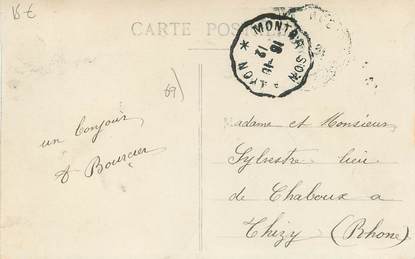 15 €
CARTE POSTALE
MONTBRISON * LYON *
16-10
12
69)
un bonjour
Bourcier
Madame et Monsieur
Sylvestre lieu
de Chaboux a
Thizy (Rhone)